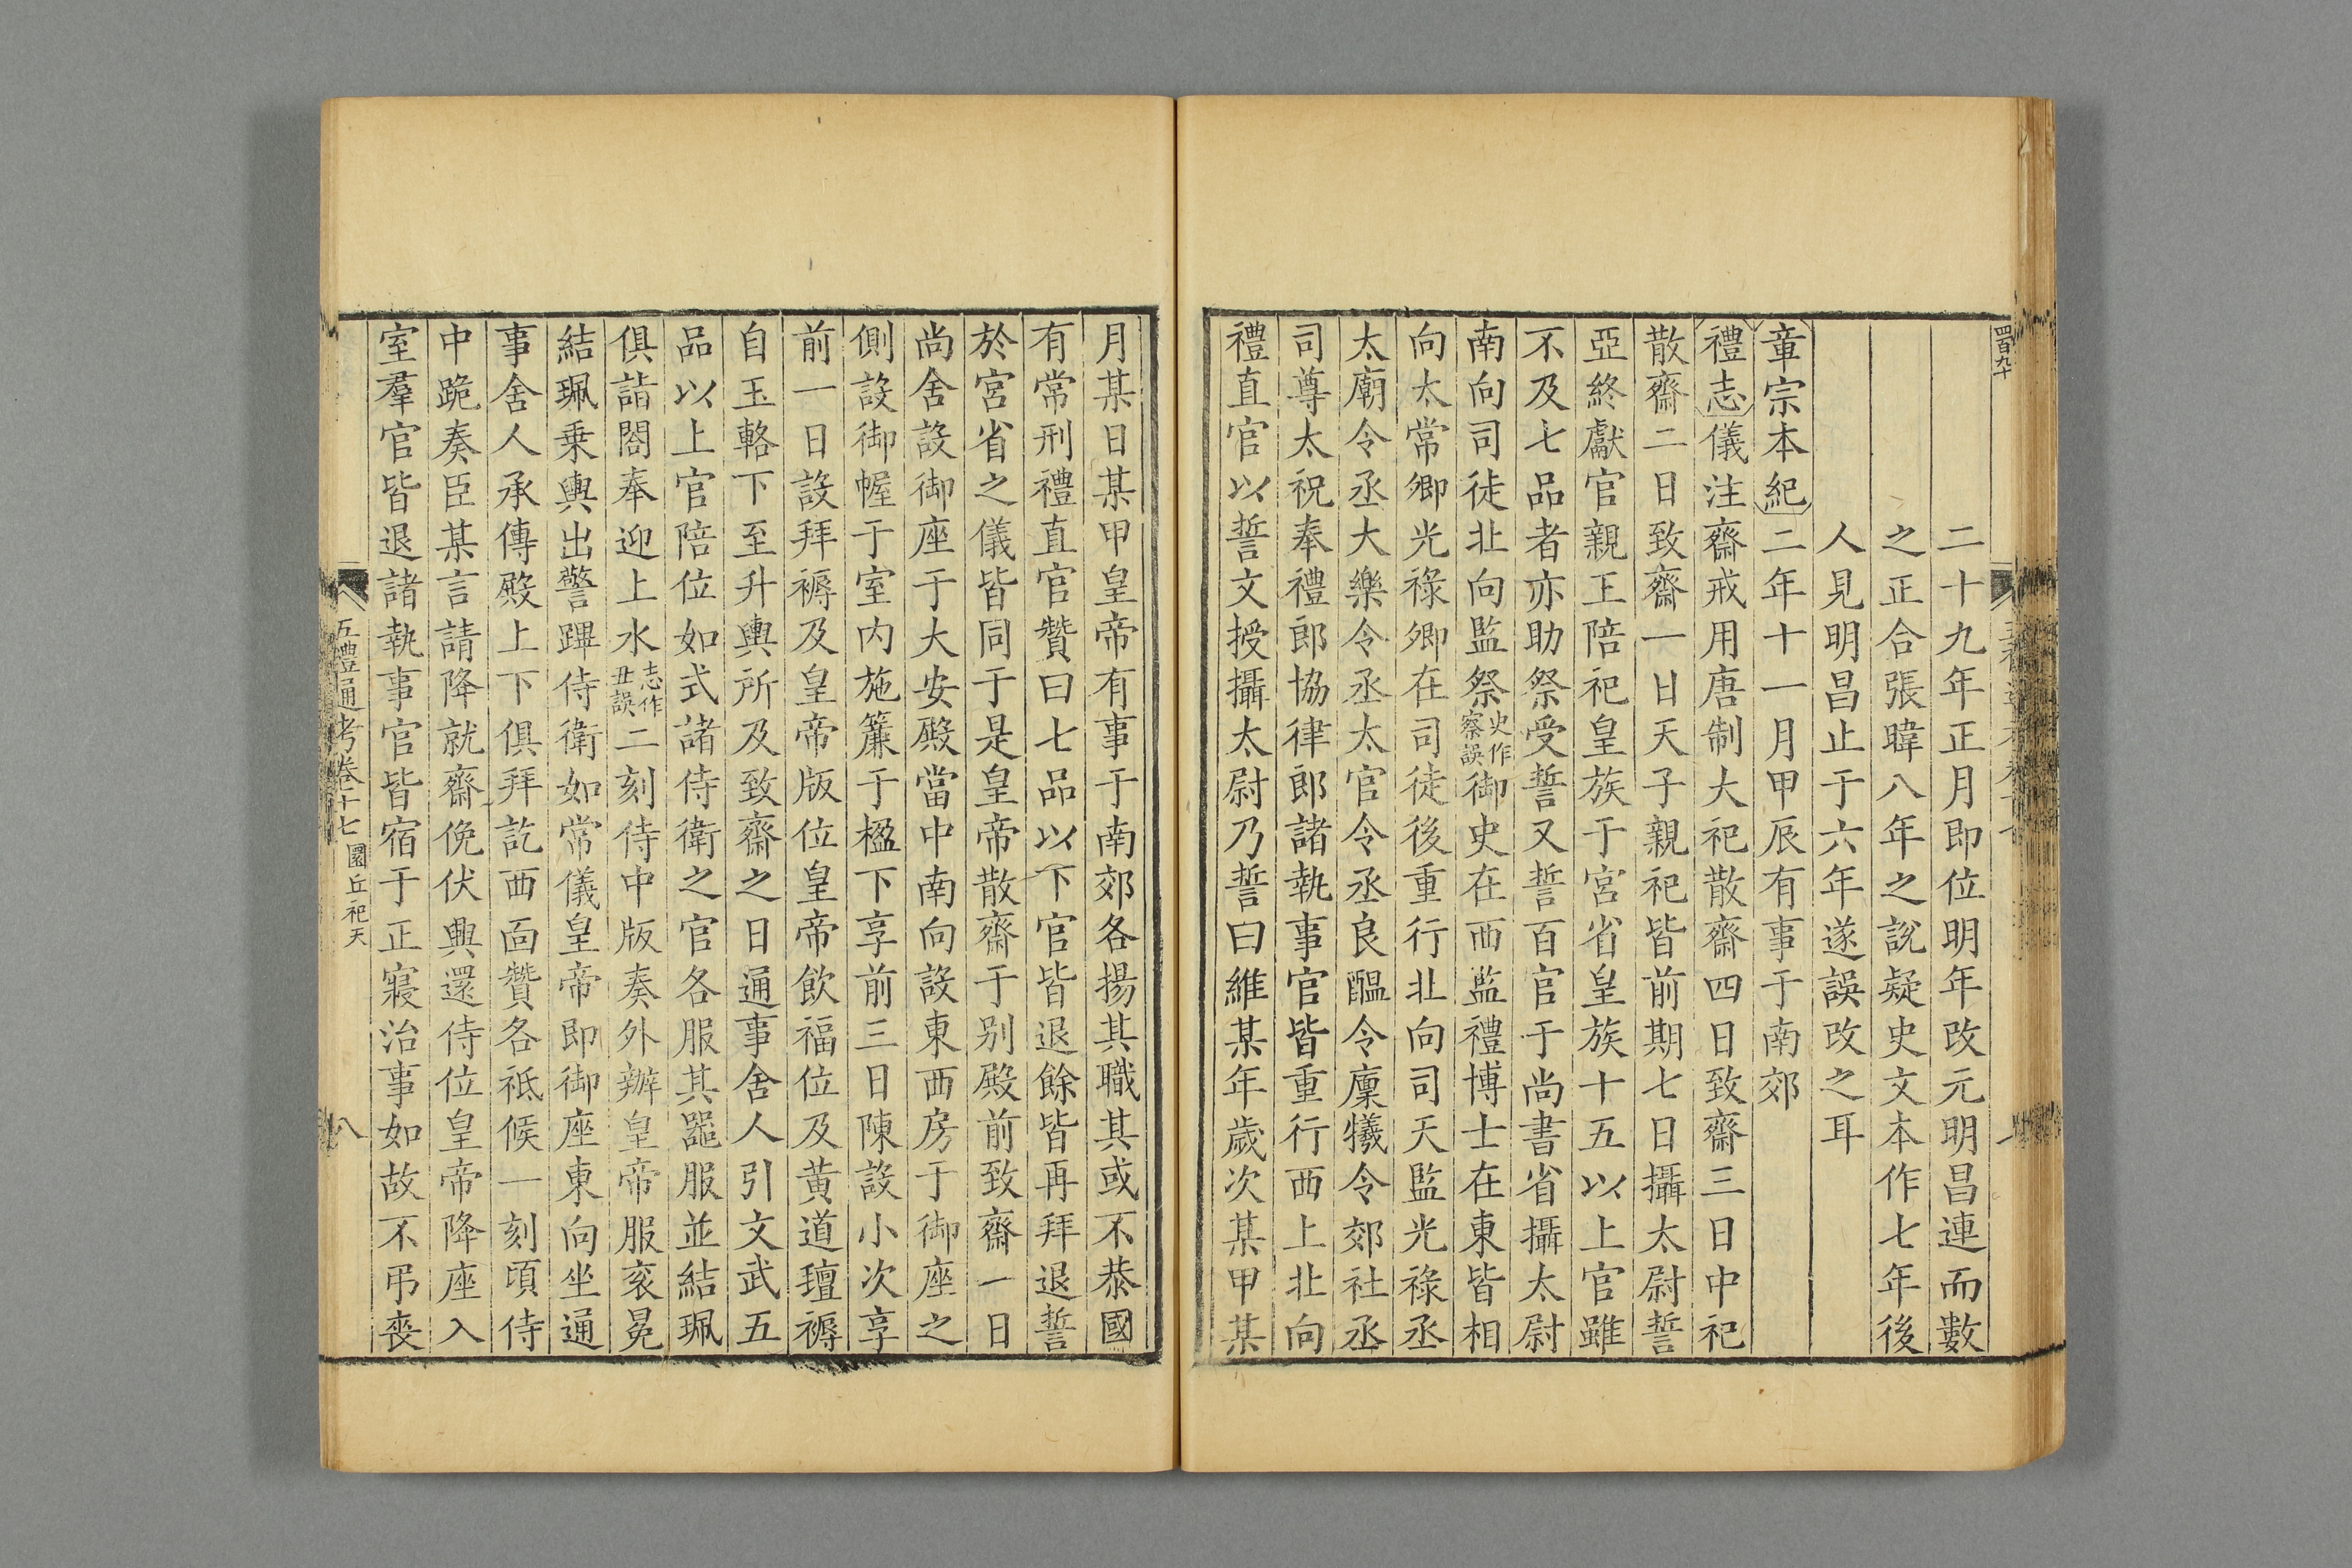 二十九年正月即位明年改元明昌連而數
之正合張暐八年之說疑史文本作七年後
人見明昌止于六年遂誤改之耳
章宗本紀二年十一月甲辰有事于南郊
禮志儀注齋戒用唐制大祀散齋四日致齋三日中祀
散齋二日致齋一日天子親祀皆前期七日攝太尉誓
亞終獻官親王陪祀皇族于宮省皇族十五以上官雖
不及七品者亦助祭受誓又誓百官于尚書省攝太尉
南向司徒北向監祭史作察誤御史在西監禮博士在東皆相
向太常卿光祿卿在司徒後重行北向司天監光祿丞
太廟令丞大樂令丞太官令丞良醞令廩犧令郊社丞
司尊太祝奉禮郎協律郎諸執事官皆重行西上北向
禮直官以誓文授攝太尉乃誓曰維某年歲次某甲某
月某日某甲皇帝有事于南郊各揚其職其或不恭國
有常刑禮直官贊曰七品以下官皆退餘皆再拜退誓
於宮省之儀皆同于是皇帝散齋于別殿前致齋一日
尚舍設御座于大安殿當中南向設東西房于御座之
側設御幄于室內施簾于楹下享前三日陳設小次享
前一日設拜褥及皇帝版位皇帝飲福位及黃道𥛬褥
自玉輅下至升輿所及致齋之日通事舍人引文武五
品以上官陪位如式諸侍衛之官各服其器服並結珮
俱詣閤奉迎上水志作丑誤二刻侍中版奏外辦皇帝服衮冕
結珮乗輿出警蹕侍衛如常儀皇帝即御座東向坐通
事舍人承傳殿上下俱拜訖西面贊各祗候一刻頃侍
中跪奏臣某言請降就齋俛伏興還侍位皇帝降座入
室羣官皆退諸執事官皆宿于正寢治事如故不弔喪
五禮通考卷十七圜丘祀天
八